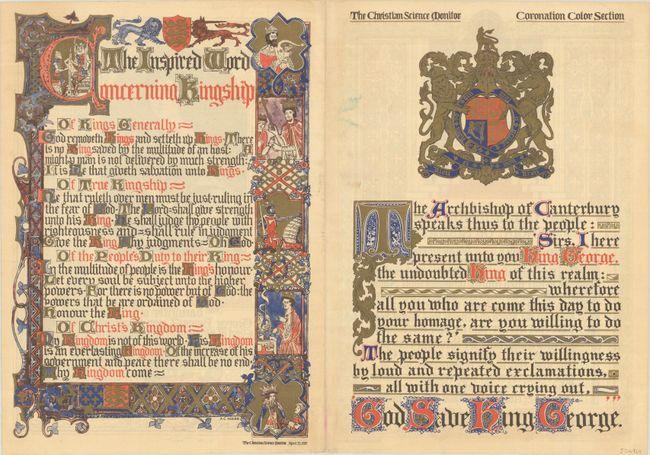 The Inspired Word
Concerning Kingship
Of Kings Generally
God removeth Kings and setteth up Kings · There
is no King saved by the multitude of an host: A
mighty man is not delivered by much strength:
It is He that giveth salvation unto Kings ·
Of True Kingship
He that ruleth over men must be just · ruling in
the fear of God · The Lord shall give strength
unto his King · He shall judge thy people with
righteousness and shall rule in judgment
Give the King thy judgments · Oh God ·
Of the People's Duty to their King
In the multitude of people is the King's honour ·
Let every soul be subject unto the higher
powers · For there is no power but of God: the
powers that be are ordained of God ·
Honour the King ·
Of Christ's Kingdom
My Kingdom is not of this world · His Kingdom
is an everlasting Kingdom · Of the increase of his
government and peace there shall be no end ·
Thy Kingdom come
The Christian Science Monitor April 21, 1937
The Christian Science Monitor Coronation Color Section
The Archbishop of Canterbury
speaks thus to the people:
"Sirs, I here
present unto you King George,
the undoubted King of this realm:
wherefore
all you who are come this day to do
your homage, are you willing to do
the same?"
The people signify their willingness
by loud and repeated exclamations,
all with one voice crying out,
"God Save King George."